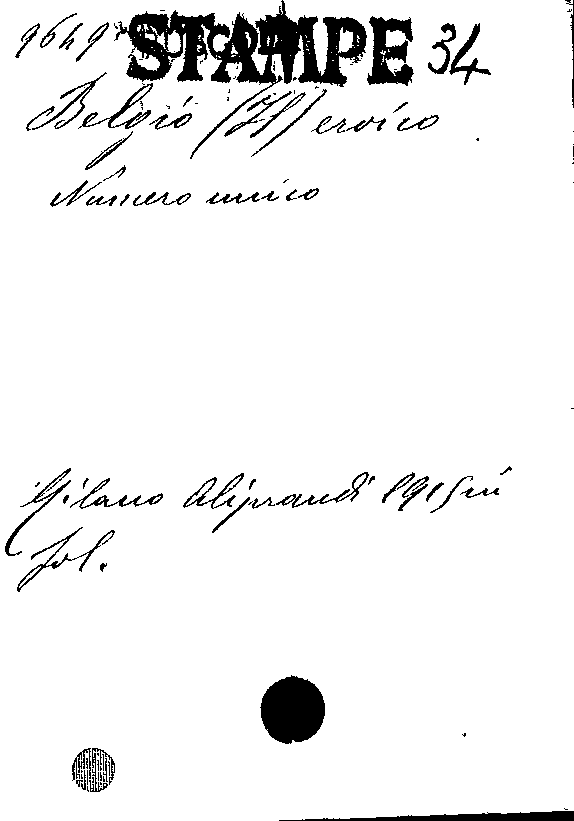 9649 STAMPE 34
Belgio (Il) eroico
Numero unico
Milano Aliprandi 1915 in
fol.